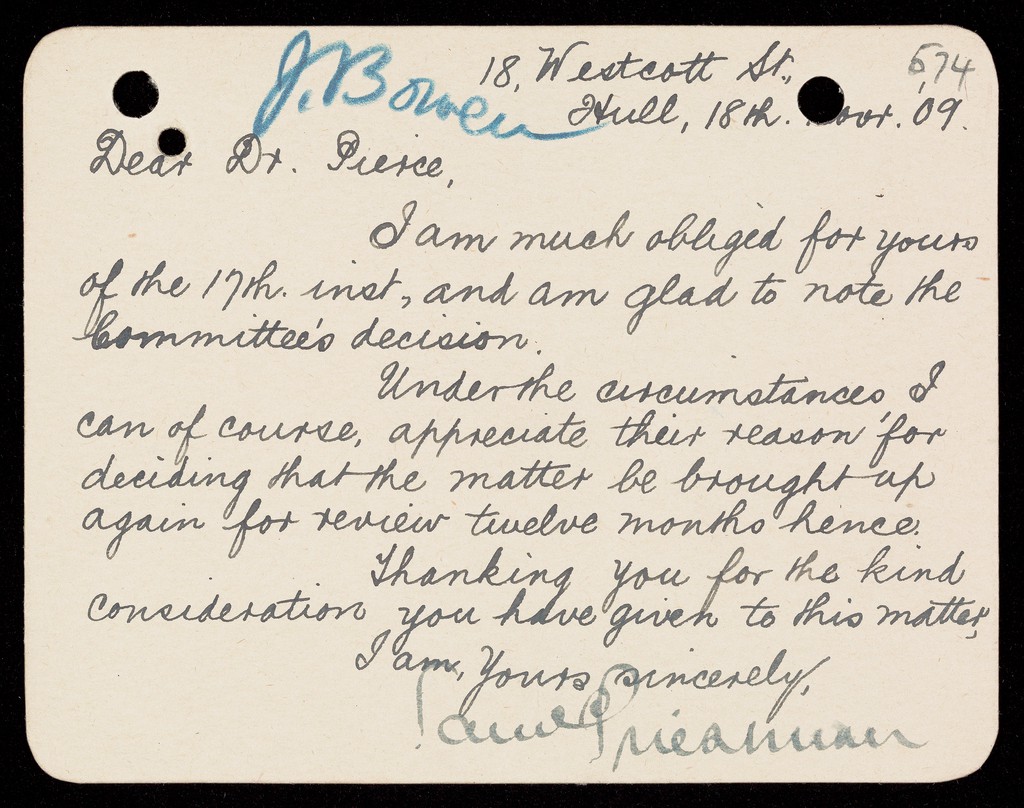 J. Bowen
574
18, Westcott St.,
Hull, 18th. Novr. 09.
Dear Dr. Pierce,
I am much obliged for yours
of the 17th. inst., and am glad to note the
Committee's decision.
Under the circumstances, I
can of course, appreciate their reason for
deciding that the matter be brought up
again for review twelve months hence.
Thanking you for the kind
consideration you have given to this matter,
I am, Yours sincerely,